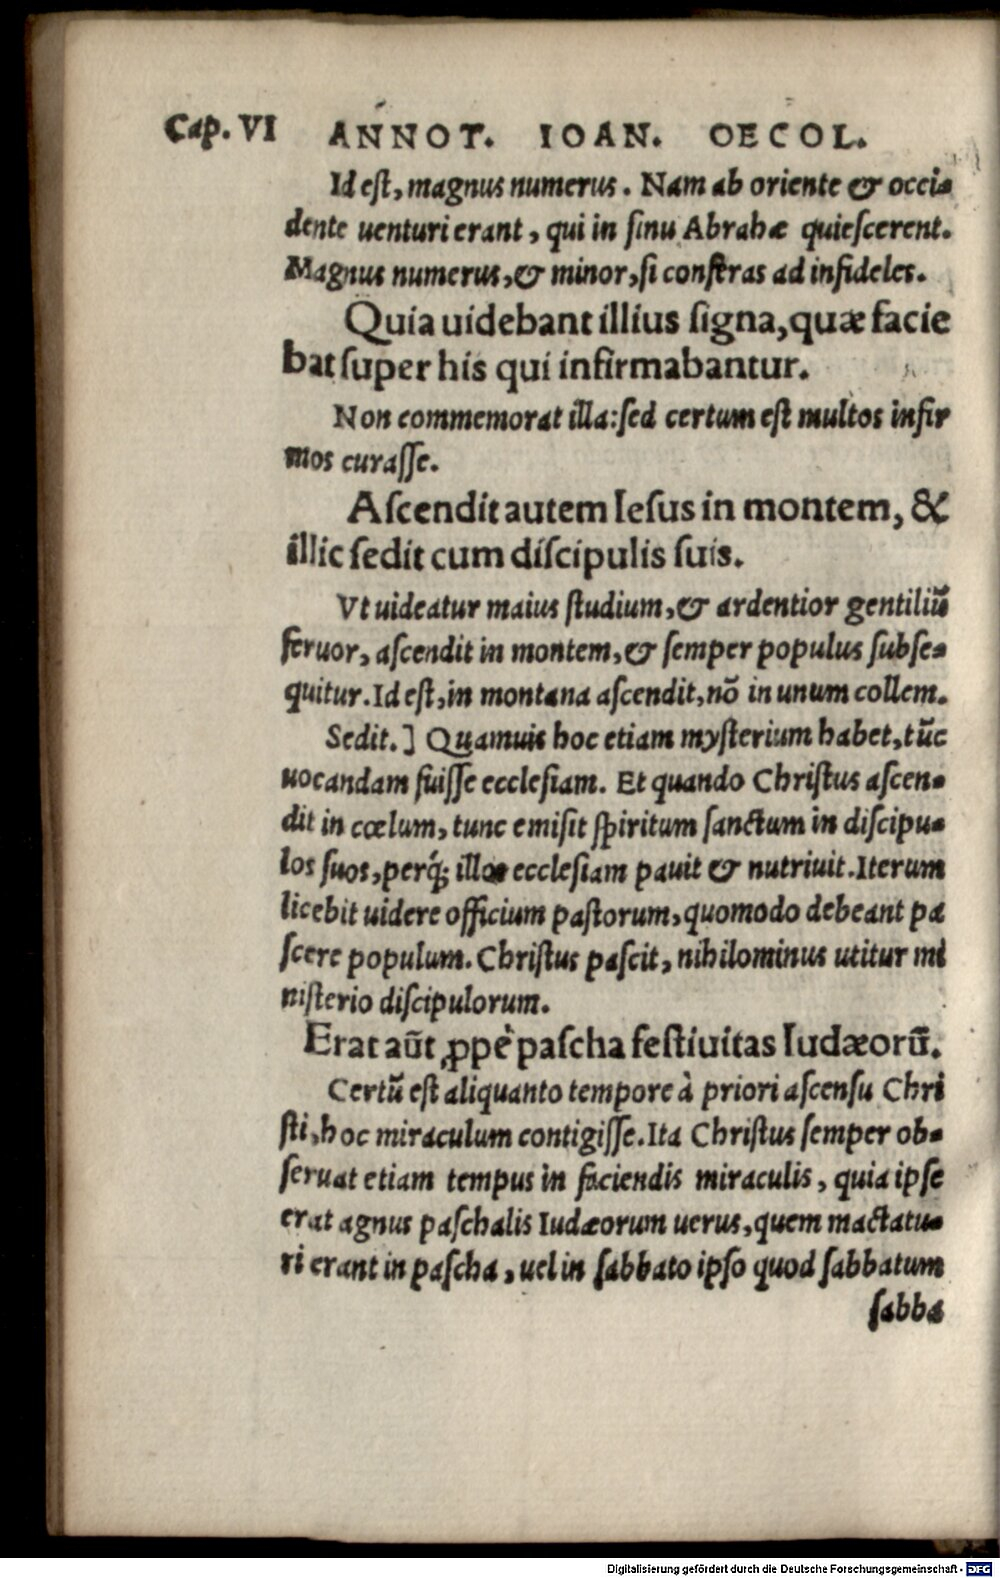 Cap. VI ANNOT. IOAN. OECOL.
Id eſt, magnus numerus. Nam ab oriente & occi-
dente uenturi erant, qui in ſinu Abrahæ quieſcerent.
Magnus numerus, & minor, ſi conferas ad infideles.
Quia uidebant illius ſigna, quæ facie
bat ſuper his qui infirmabantur.
Non commemorat illa: ſed certum eſt multos infir
mos curaſſe.
Aſcendit autem Ieſus in montem, &
illic ſedit cum diſcipulis ſuis.
Vt uideatur maius ſtudium, & ardentior gentiliū
feruor, aſcendit in montem, & ſemper populus ſubſe-
quitur. Id eſt, in montana aſcendit, nō in unum collem.
Sedit.] Quamuis hoc etiam myſterium habet, tūc
uocandam fuiſſe eccleſiam. Et quando Chriſtus aſcen-
dit in cœlum, tunc emiſit ſpiritum ſanctum in diſcipu-
los ſuos, perq́; illos eccleſiam pauit & nutriuit. Iterum
licebit uidere officium paſtorum, quomodo debeant pa
ſcere populum. Chriſtus paſcit, nihilominus utitur mi
niſterio diſcipulorum.
Erat aūt ꝓpè paſcha feſtiuitas Iudæorū.
Certū eſt aliquanto tempore à priori aſcenſu Chri
ſti, hoc miraculum contigiſſe. Ita Chriſtus ſemper ob-
ſeruat etiam tempus in faciendis miraculis, quia ipſe
erat agnus paſchalis Iudæorum uerus, quem mactatu-
ri erant in paſcha, uel in ſabbato ipſo quod ſabbatum
ſabba
Digitalisierung gefördert durch die Deutsche Forschungsgemeinschaft - DFG